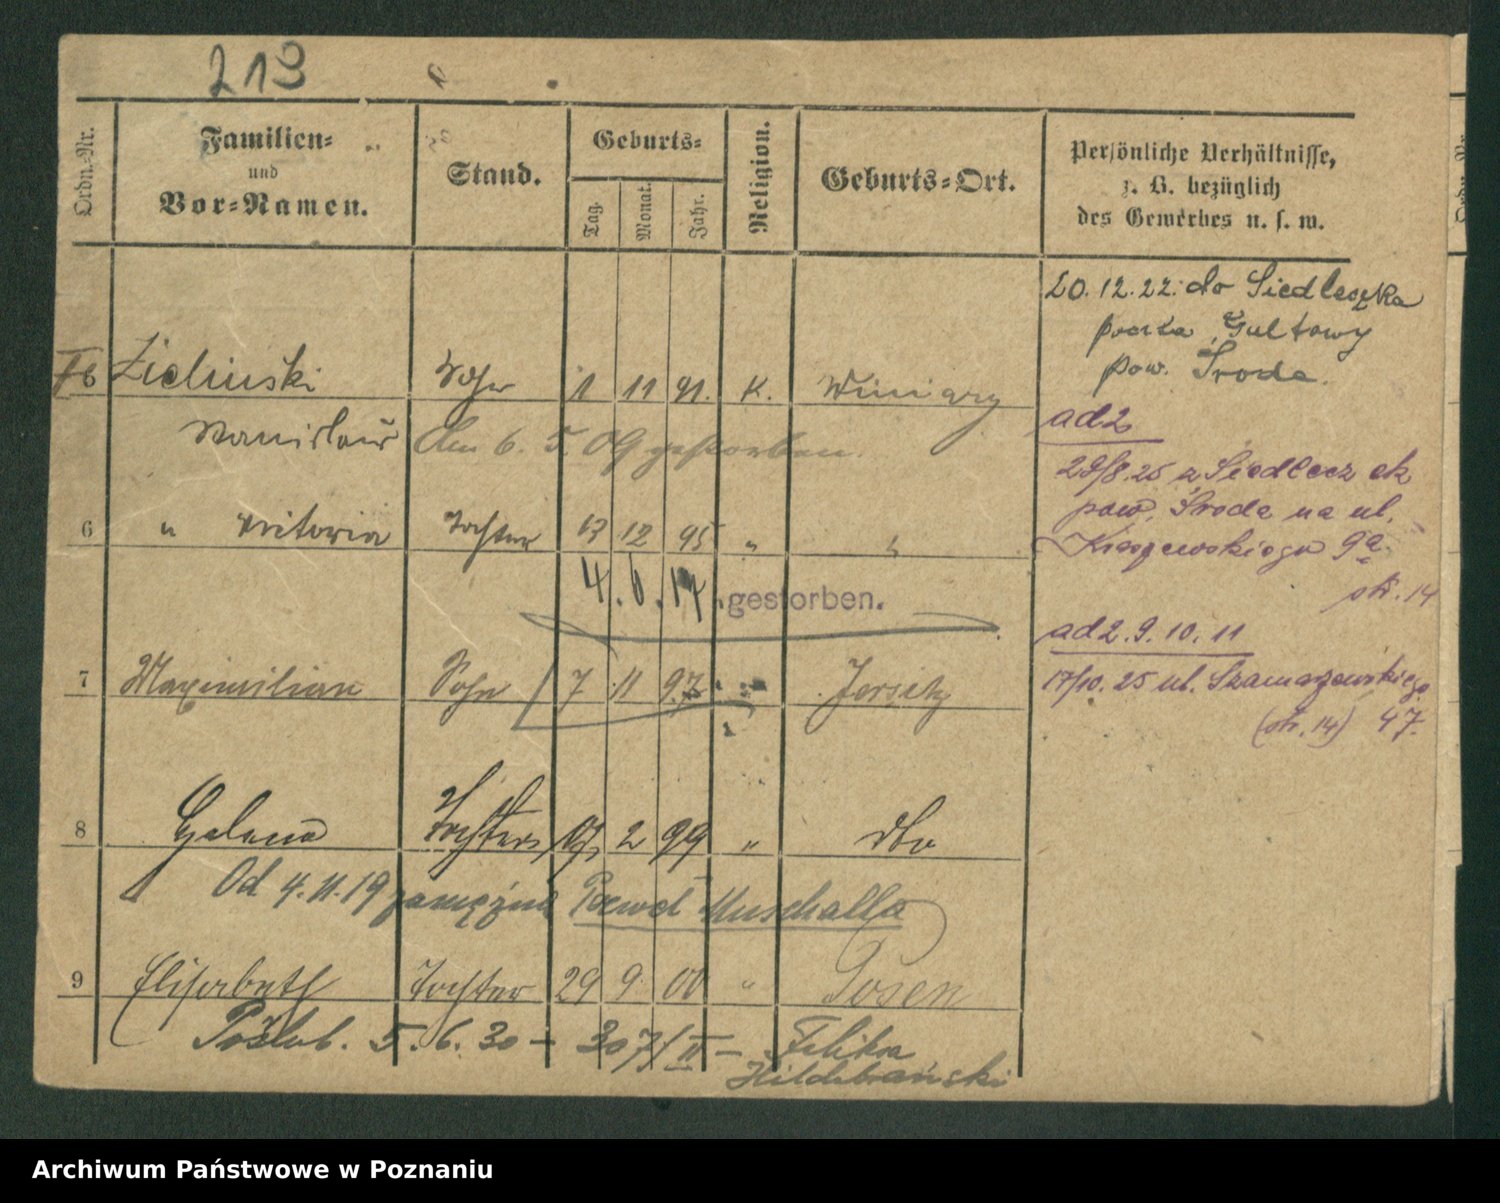 213
Ordn.-Nr.
Familien-
und
Vor-Namen.
Stand.
Geburts-
Tag.
Monat.
Jahr.
Religion.
Geburts-Ort.
Persönliche Verhältnisse,
z. B. bezüglich
des Gewerbes u. s. w.
20.12.22. do Siedleczka
poczta Gułtowy
pow. Środa.
Zielinski Sohn 1 11 91. K. Winiary
Stanislaus den 6. 5. 09 gestorben.
ad 2
28/8.25 z Siedlecz ek
pow. Środa na ul.
6 " Viktoria Tochter 13 12 95 " "
Kraszewskiego 9a
str. 14
4. 6. 17. gestorben.
ad 2. 9. 10. 11
7 Maximilian Sohn 7 11 97 " Jersitz
17/10. 25 ul. Szamarzewskiego
(str. 14) 47.
8 Helena Tochter 2 99 " dto
Od 4. 11. 19 zamężna Paweł Muschalla
9 Elisabeth Tochter 29 9 00 " Posen
Poślub. 5. 6. 30 – 307/II – Feliksa
Hildebrański
Archiwum Państwowe w Poznaniu